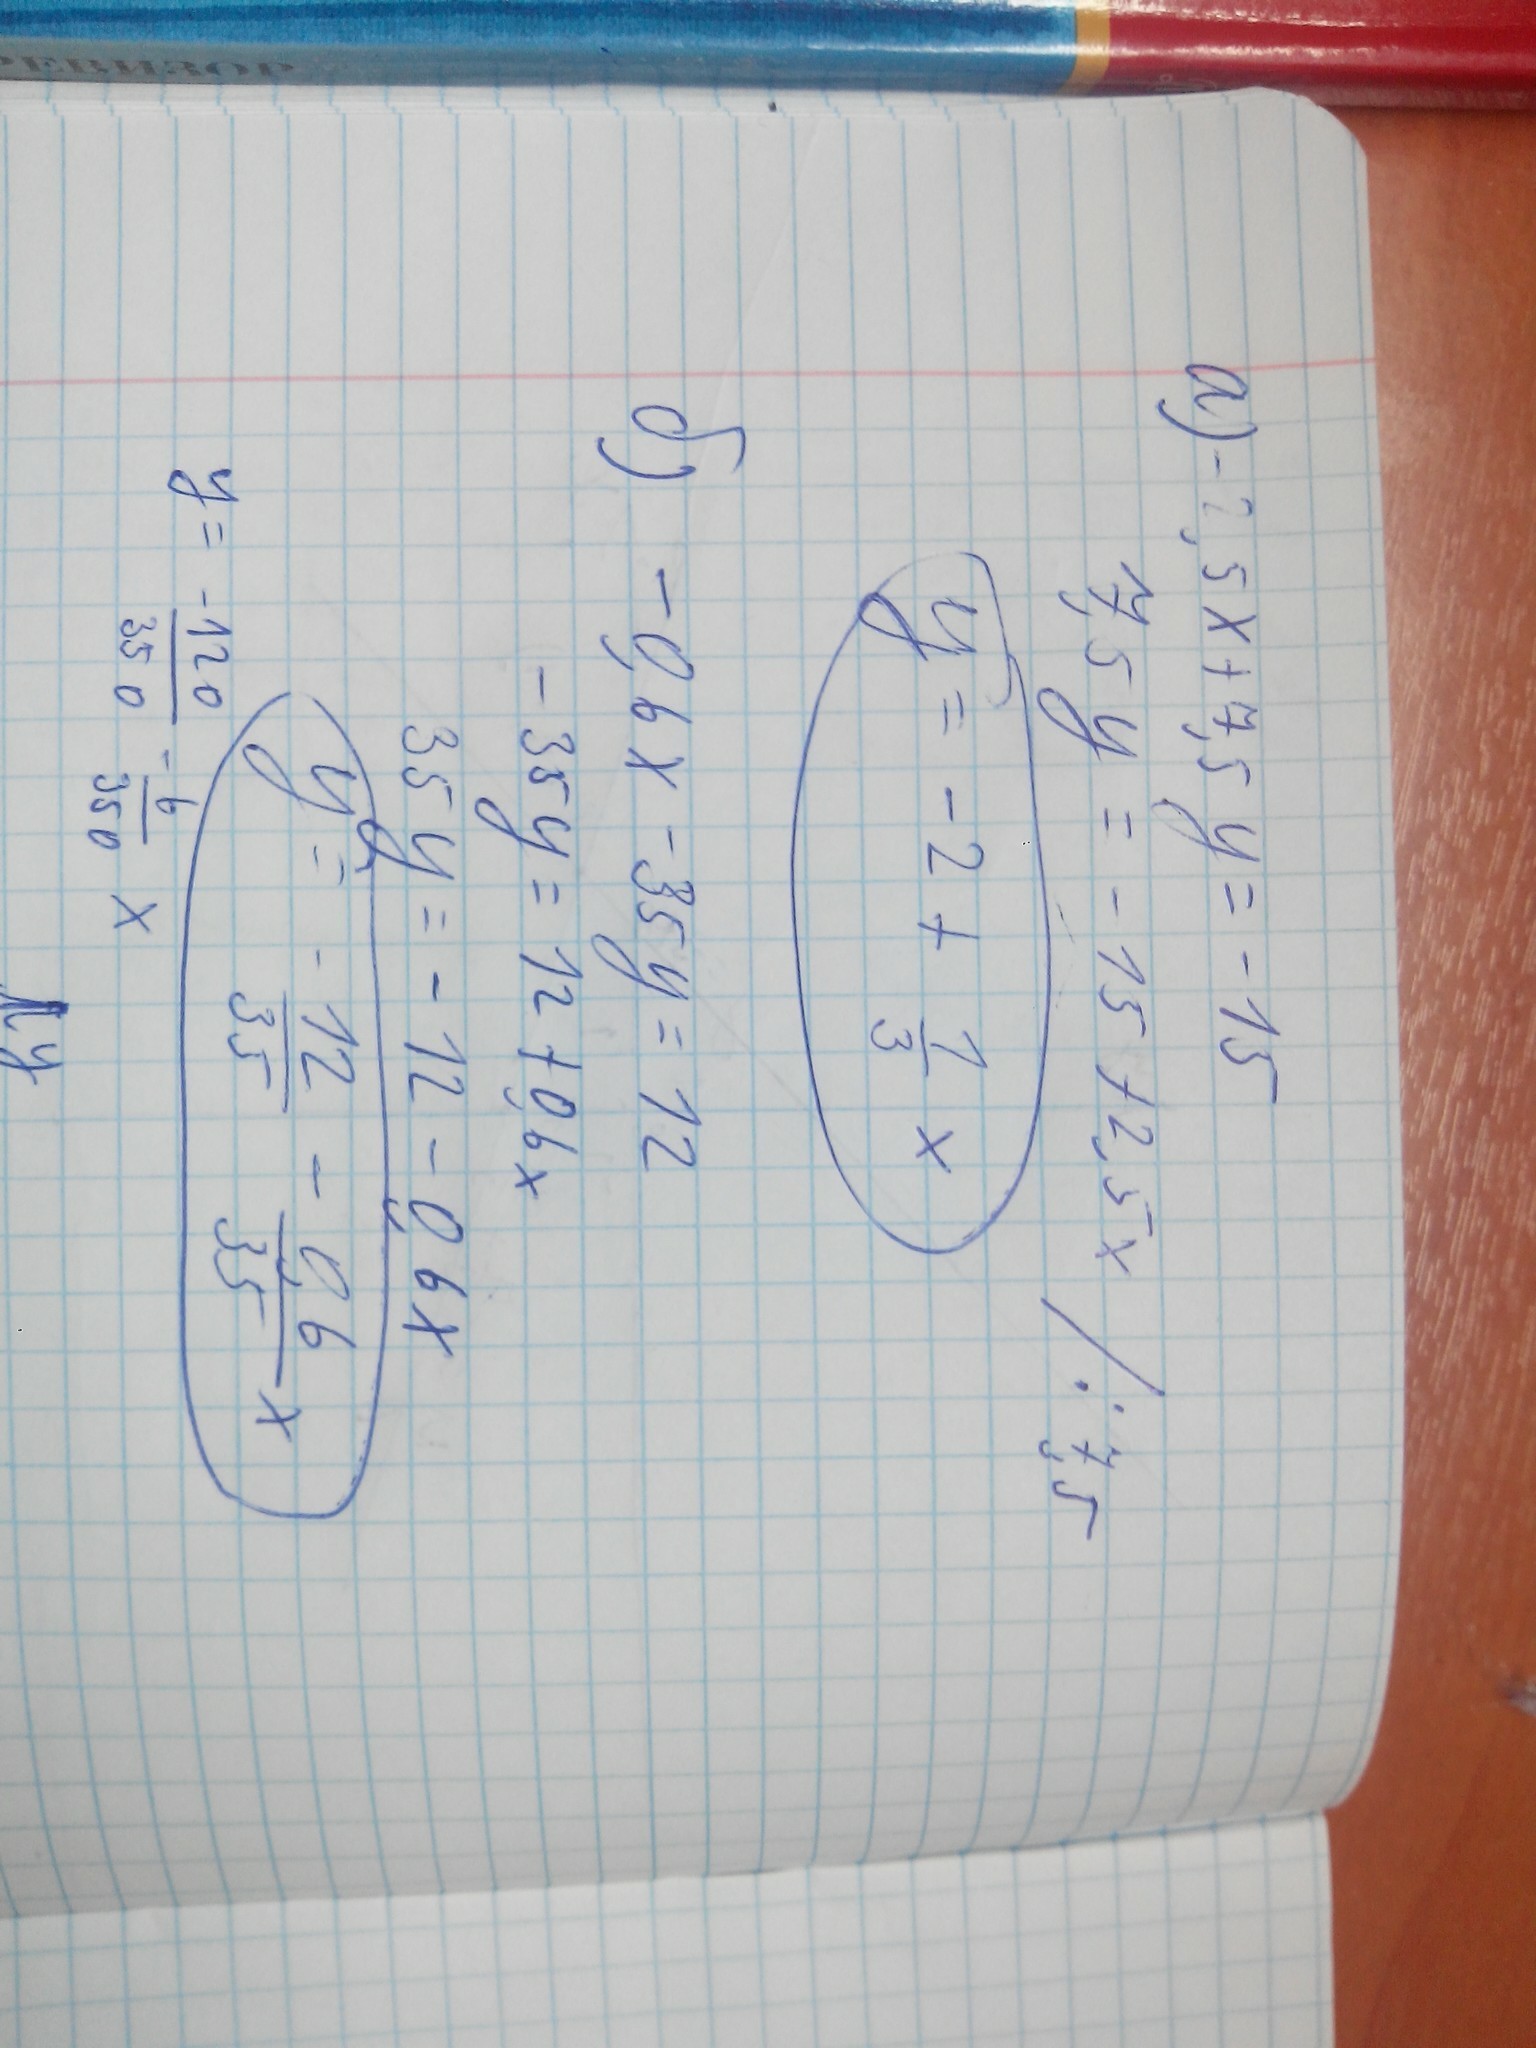 РЕВИЗОР
а) -2,5x+7,5y=-15
7,5y=-15+2,5x /:7,5
y=-2+1/3 x
б) -0,6x-35y=12
-35y=12+0,6x
35y=-12-0,6x
y=-12/35-0,6/35 x
y=-120/350-6/350 x